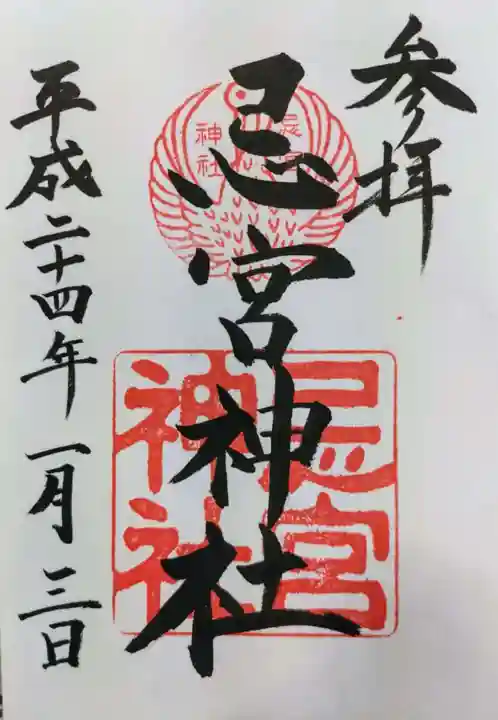 参拝
忌宮神社
忌宮
神社
忌宮
神社
平成二十四年一月三日